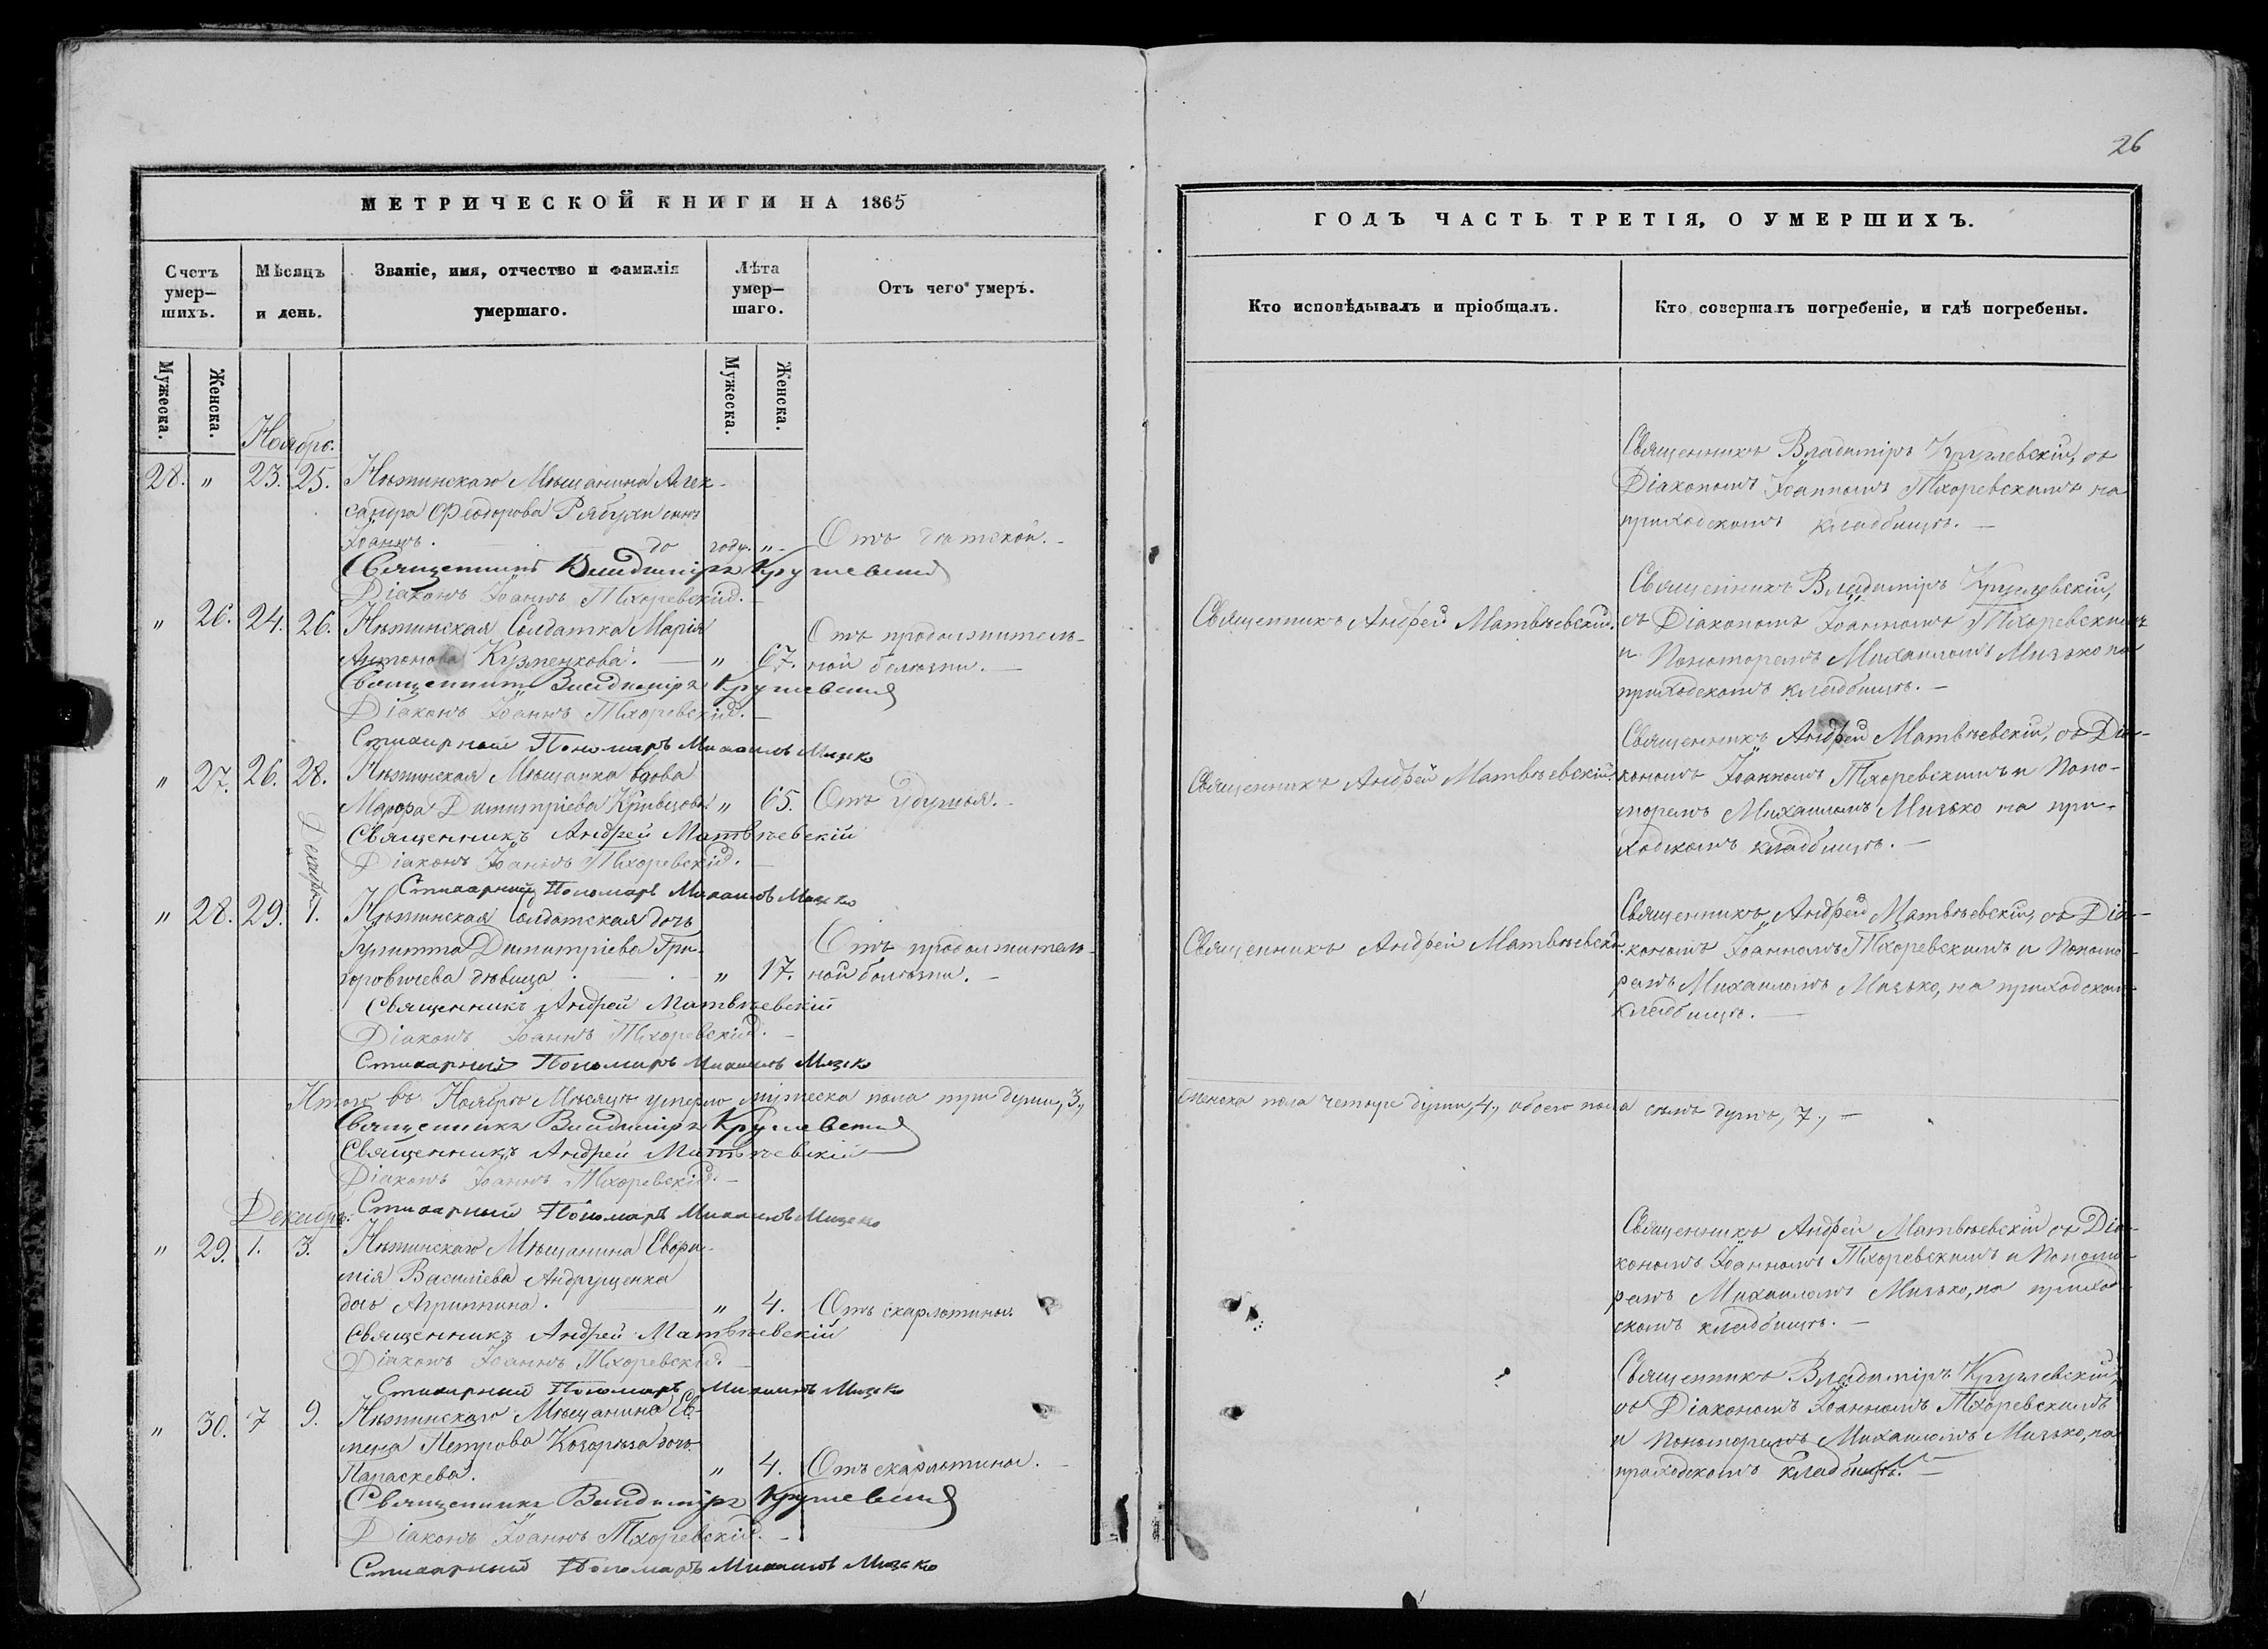 26
МЕТРИЧЕСКОЙ КНИГИ НА 1865
Счетъ умер-шихъ.
Мѣсяцъ и день.
Званіе, имя, отчество и фамилія умершаго.
Лѣта умер-шаго.
Отъ чего умеръ.
Мужеска.
Женска.
Мужеска.
Женска.
Ноябрь.
28. " 23. 25. Нѣжинскаго Мѣщанина Алек-
сандра Феодорова Рябухи сынъ
Іоаннъ. до году. " Отъ дѣтской.
Священникъ Владиміръ Крушевскій
Діаконъ Іоаннъ Тхоревскій.
" 26. 24. 26. Нѣжинская Солдатка Марія
Антонова Кузменкова. " 67. Отъ продолжитель-
ной болѣзни.
Священникъ Владиміръ Крушевскій
Діаконъ Іоаннъ Тхоревскій.
Стихарный Пономарь Михаилъ Мизько
" 27. 26. 28. Нѣжинская Мѣщанка вдова
Мавра Димитріева Кривцова " 65. Отъ удушья.
Священникъ Андрей Матвѣевскій
Діаконъ Іоаннъ Тхоревскій.
Стихарный Пономарь Михаилъ Мизько
Декабрь
" 28. 29. 1. Нѣжинская Солдатская дочь
Іулитта Димитріева Гри-
горовичева дѣвица " 17. Отъ продолжитель-
ной болѣзни.
Священникъ Андрей Матвѣевскій
Діаконъ Іоаннъ Тхоревскій.
Стихарный Пономарь Михаилъ Мизько
Итого въ Ноябрѣ Мѣсяцѣ умерло мужеска пола три души, 3.,
Священникъ Владиміръ Крушевскій
Священникъ Андрей Матвѣевскій
Діаконъ Іоаннъ Тхоревскій.
Стихарный Пономарь Михаилъ Мизько
Декабрь.
" 29. 1. 3. Нѣжинскаго Мѣщанина Евѳи-
мія Василіева Андрущенка
дочь Агриппина. " 4. Отъ скарлатины.
Священникъ Андрей Матвѣевскій
Діаконъ Іоаннъ Тхоревскій.
Стихарный Пономарь Михаилъ Мизько
" 30. 7 9. Нѣжинскаго Мѣщанина Ев-
мена Петрова Козорѣза дочь
Параскева. " 4. Отъ скарлатины.
Священникъ Владиміръ Крушевскій
Діаконъ Іоаннъ Тхоревскій.
Стихарный Пономарь Михаилъ Мизько
ГОДЪ ЧАСТЬ ТРЕТІЯ, О УМЕРШИХЪ.
Кто исповѣдывалъ и пріобщалъ.
Кто совершалъ погребеніе, и гдѣ погребены.
Священникъ Владиміръ Крушевскій, съ
Діакономъ Іоанномъ Тхоревскимъ на
приходскомъ кладбищѣ.
Священникъ Андрей Матвѣевскій.
Священникъ Владиміръ Крушевскій,
съ Діакономъ Іоанномъ Тхоревскимъ
и Пономоремъ Михаиломъ Мизько на
приходскомъ кладбищѣ.
Священникъ Андрей Матвѣевскій.
Священникъ Андрей Матвѣевскій, съ Діа-
кономъ Іоанномъ Тхоревскимъ и Поно-
моремъ Михаиломъ Мизько на при-
ходскомъ кладбищѣ.
Священникъ Андрей Матвѣевскій.
Священникъ Андрей Матвѣевскій, съ Діа-
кономъ Іоанномъ Тхоревскимъ и Пономо-
ремъ Михаиломъ Мизько, на приходскомъ
кладбищѣ.
женска пола четыре души, 4., обоего пола семь душъ, 7.,
Священникъ Андрей Матвѣевскій съ Діа-
кономъ Іоанномъ Тхоревскимъ и Пономо-
ремъ Михаиломъ Мизько, на приход-
скомъ кладбищѣ.
Священникъ Владиміръ Крушевскій,
съ Діакономъ Іоанномъ Тхоревскимъ
и Пономоремъ Михаиломъ Мизько, на
приходскомъ кладбищѣ.